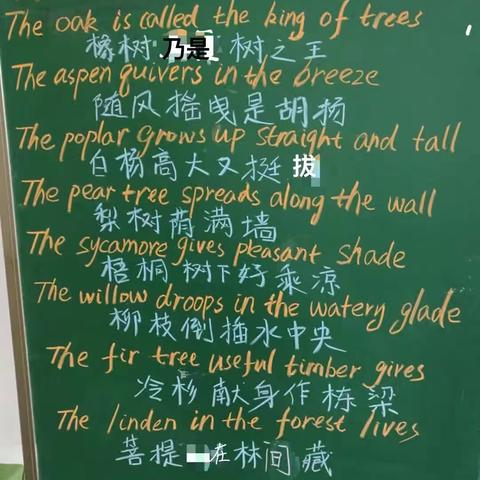 The oak is called the king of trees
橡树乃是树之王
The aspen quivers in the breeze
随风摇曳是胡杨
The poplar grows up straight and tall
白杨高大又挺拔
The pear tree spreads along the wall
梨树荫满墙
The sycamore gives pleasant shade
梧桐树下好乘凉
The willow droops in the watery glade
柳枝倒插水中央
The fir tree useful timber gives
冷杉献身作栋梁
The linden in the forest lives
菩提在林间藏